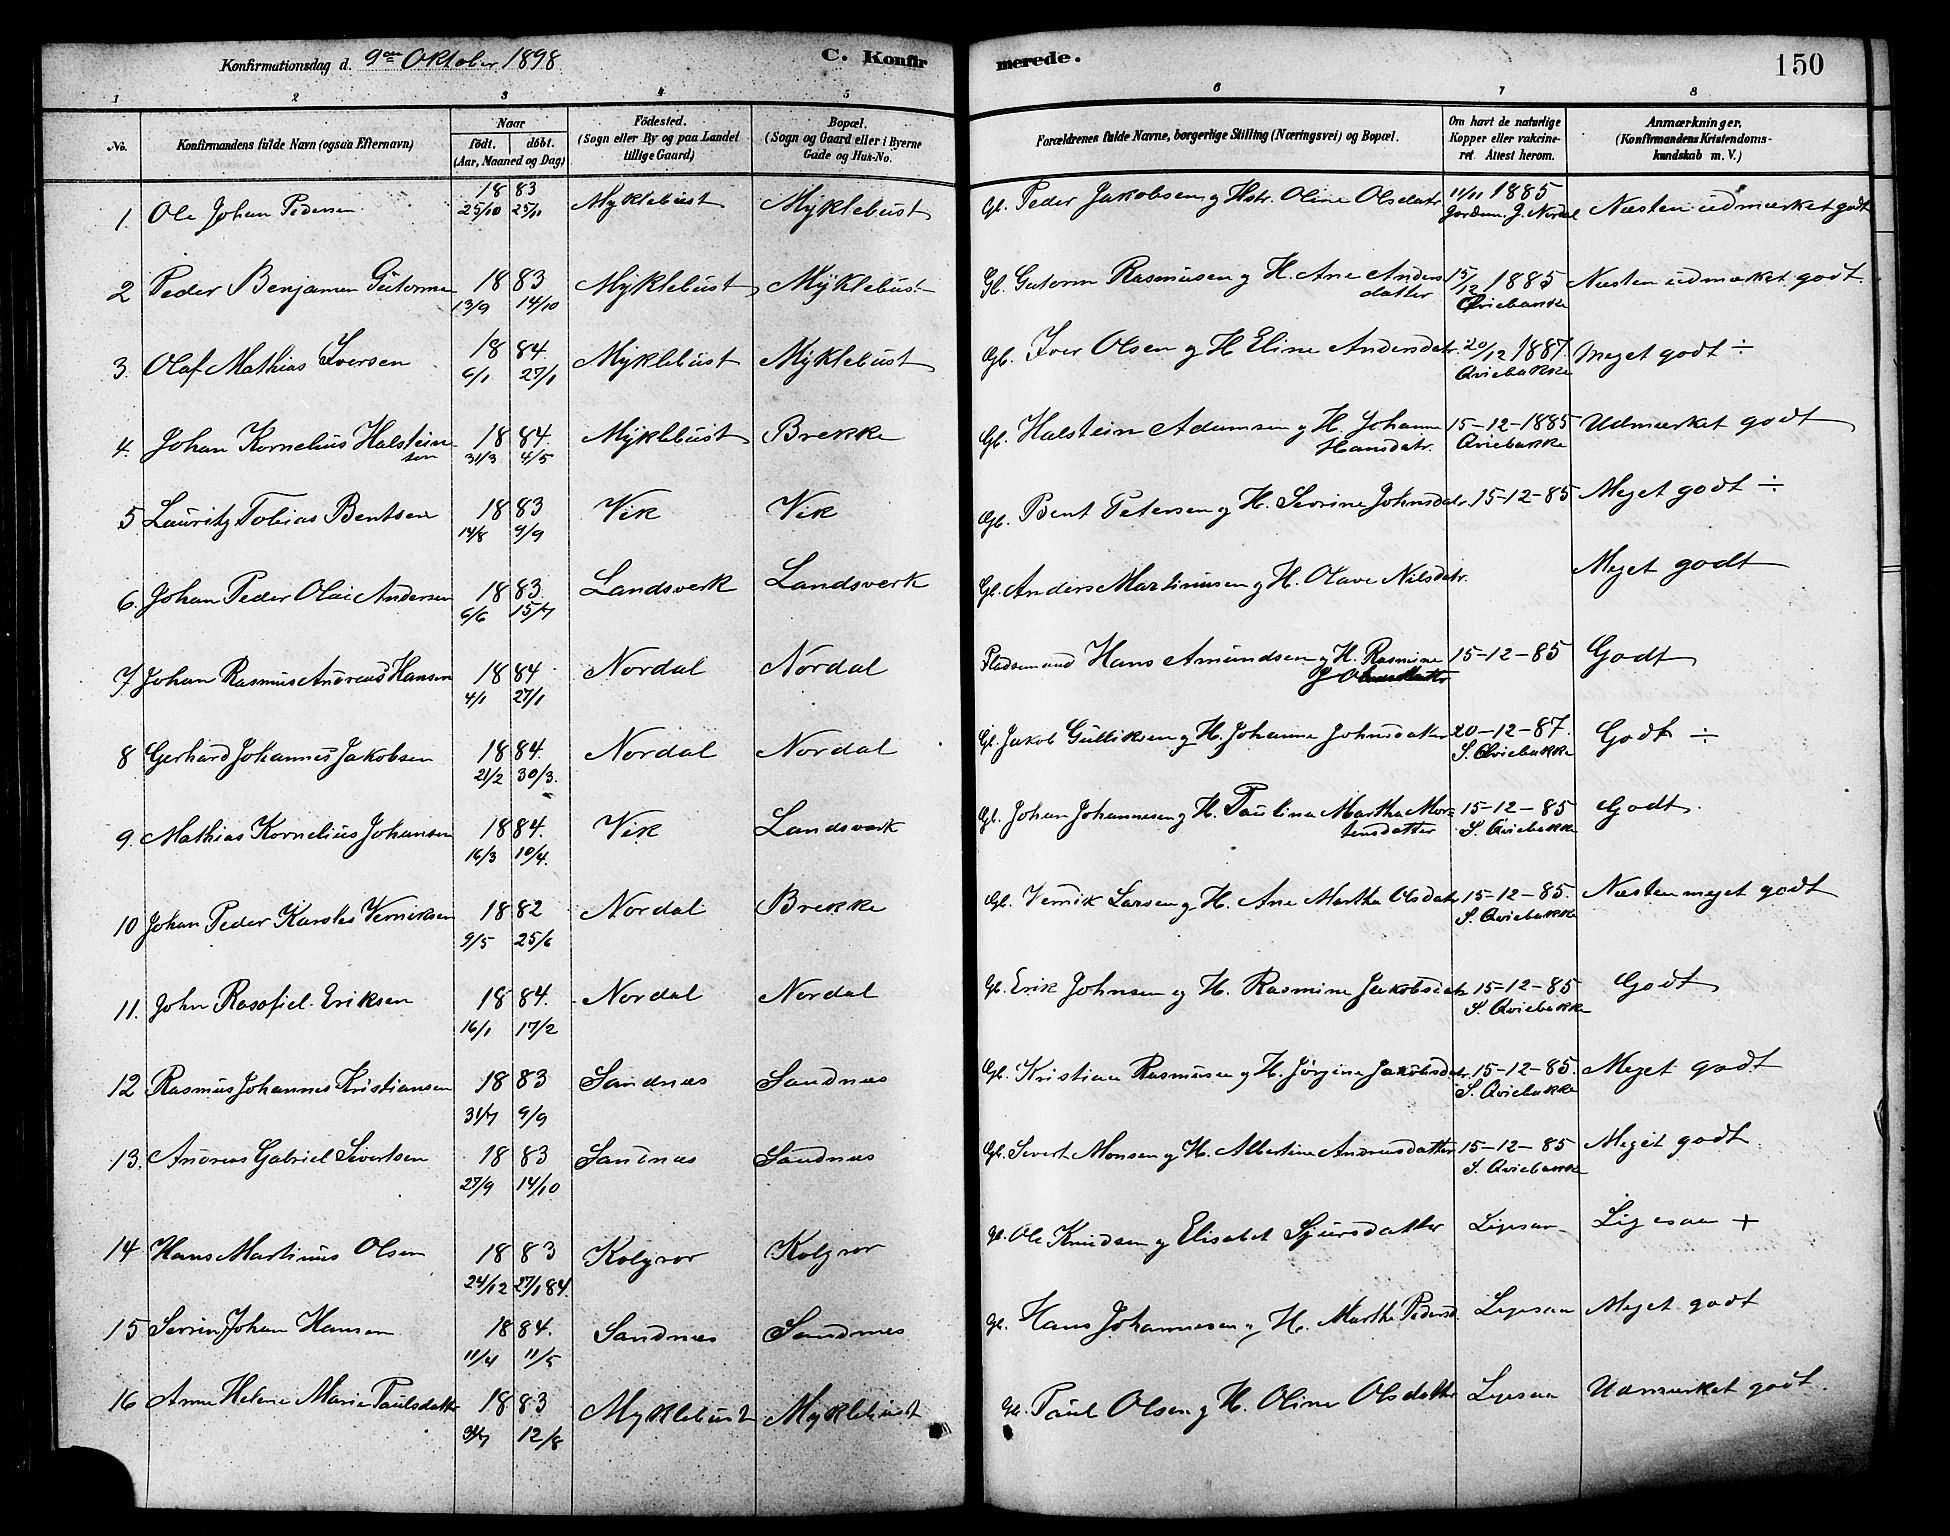 Konfirmationsdag d. 9de Oktober 1898 C. Konfirmerede. 150
1 2 3 4 5 6 7 8
No. Konfirmandens fulde Navn (ogsaa Efternavn) Naar födt. döbt. (Aar, Maaned og Dag) Födested. (Sogn eller By og paa Landet tillige Gaard) Bopæl. (Sogn og Gaard eller i Byerne Gade og Hus-No. Forældrenes fulde Navne, borgerlige Stilling (Næringsvei) og Bopæl. Om havt de naturlige Kopper eller vakcineret. Attest herom. Anmærkninger. (Konfirmandens Kristendomskundskab m. V.)
1. Ole Johan Pedersen 1883 25/10 25/11 Myklebust Myklebust Gb. Peder Jakobsen og Hstr. Oline Olsdatr 11/11 1885 Jordem. J. Nordal Næsten udmærket godt
2 Peder Benjamin Gutorme 1883 13/9 14/10 Myklebust Myklebust Gb. Gutorm Rasmusen og H. Ane Andersdatter 15/12 1885 Qviebakke Næsten udmærket godt.
3. Olaf Mathias Iversen 1884. 6/1 27/1 Myklebust Myklebust Gb. Iver Olsen og H Eline Andersdatr. 20/12 1887. Qviebakke Meget godt ÷
4. Johan Kornelius Halsteinsen 1884. 31/3 4/5 Myklebust Brekke Gb. Halstein Adamsen og H. Johanne Hansdatr. 15-12-1885 Qviebakke Udmærket godt
5 Lauritz Tobias Bentsen 1883 14/8 9/9 Vik Vik Gb. Bent Petersen og H. Sevrine Johnsdatr. 15-12-85 Meget godt ÷
6. Johan Peder Olai Andersen 1883. 6/6 15/7 Landsverk Landsverk Gb. Anders Martinusen og H. Olave Nilsdatr. Meget godt
7 Johan Rasmus Andreas Hansen 1884 4/1 27/1 Nordal Nordal Pladsemand Hans Amundsen og H. Rasmine 15-12-85 Godt
8 Gerhard Johannes Jakobsen 1884. 21/2 30/3. Nordal Nordal Gb. Jakob Gulliksen og H. Johanne Johnsdatter 20-12-87. S. Qviebakke Godt ÷
9. Mathias Kornelius Johansen 1884. 16/3 10/4. Vik Landsverk Gb. Johan Johannesen og H. Pauline Martha Mortensdatter 15-12-85 S. Qviebakke Godt.
10 Johan Peder Karolus Verniksen 1882 9/5 25/6 Nordal Brekke Gb. Vernik Larsen og H. Ane Martha Olsdatr 15-12-85. S. Qviebakke Næsten meget godt
11. John Rasofiel Eriksen 1884. 16/1 17/2 Nordal Nordal Gb. Erik Johnsen og H. Rasmine Jakobsdatr 15-12-85 S. Qviebakke Godt
12 Rasmus Johannes Kristiansen 1883 31/7 9/9 Sandnæs Sandnæs Gb. Kristian Rasmusen og H. Jørgine Jakobsdatr. 15-12-85. S. Qviebakke Meget godt
13. Andreas Gabriel Sivertsen 1883 27/9 14/10 Sandnæs Sandnæs Gb. Sivert Monsen og H. Albertine Andreasdatter 15-12-85 S. Qviebakke Meget godt.
14 Hans Martinus Olsen 1883 24/12 27/1 84. Kolgrov Kolgrov Gb. Ole Knudsen og Elisabet Sjursdatter Ligesaa Ligesaa +
15 Sevrin Johan Hansen 1884. 11/4 11/5 Sandnæs Sandnæs Gb. Hans Johannesen og H. Marthe Pedersd. Ligesaa Meget godt
16 Anne Helene Marie Paulsdatter 1883 12/8 Myklebust Myklebust Gb. Paul Olsen og H. Oline Olsdatter Ligesaa Udmærket godt.